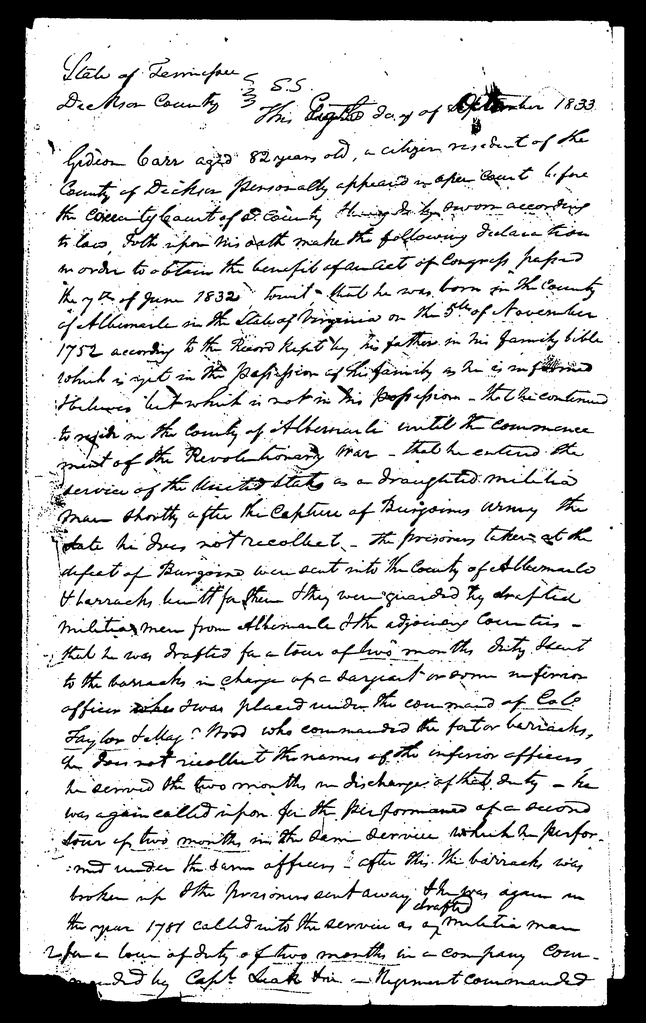 State of Tennessee } S.S
Dickson County } This Eighth day of October 1833
Gideon Carr aged 82 years old, a citizen resident of the
County of Dickson personally appeared in open court before
the County Court of Sd. County being duly sworn according
to law, doth upon his oath make the following declaration
in order to obtain the benefit of an act of Congress passed
the 7th of June 1832 towit, that he was born in the County
of Albemarle in the State of Virginia on the 5th of November
1752 according to the Record kept by his father in his family bible
which is yet in the possession of the family as he is informed
& believes but which is not in his possession - that he continued
to reside in the County of Albemarle until the commence
ment of the Revolutionary War - that he entered the
service of the United States as a draughted militia
man shortly after the Capture of Burgoines army the
date he does not recollect - the prisoners taken at the
defeat of Burgoine were sent into the County of Albemarle
& barracks built for them & they were guarded by drafted
militia men from Albemarle & the adjoining Counties -
that he was drafted for a tour of two months duty & sent
to the barracks in charge of a sargeant or some inferior
officer & was placed under the command of Colo.
Taylor & Maj. Wood who commanded the fort or barracks,
he does not recollect the names of the inferior officers,
he served the two months in discharge of that duty - he
was again called upon for the performance of a second
tour of two months in the same service which he perfor
:med under the same officers - after this the barracks was
broken up & the prisoners sent away & he was again in
the year 1781 called into the service as a drafted militia man
2 for a tour of duty of two months in a company Com-
manded by Capt. Leak in a Regiment commanded